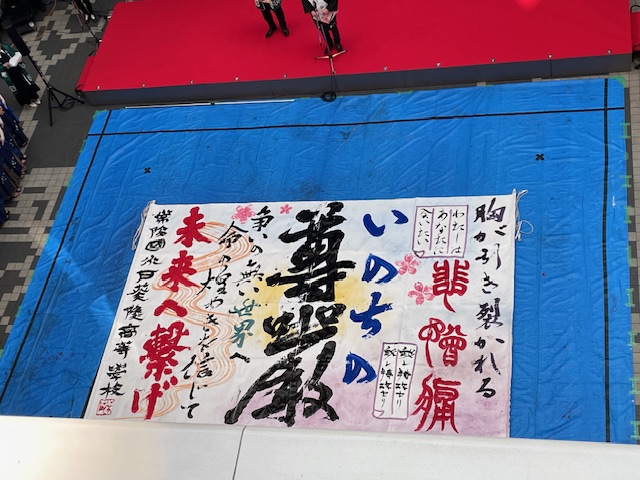 胸が引き裂かれる
わたしは
あなたに
会いたい
悲憎痛
いのちの
尊厳
争いの無い世界へ
命の煌めきを信じて
未来へ繋げ
常陸國水戸葵陵高等學校